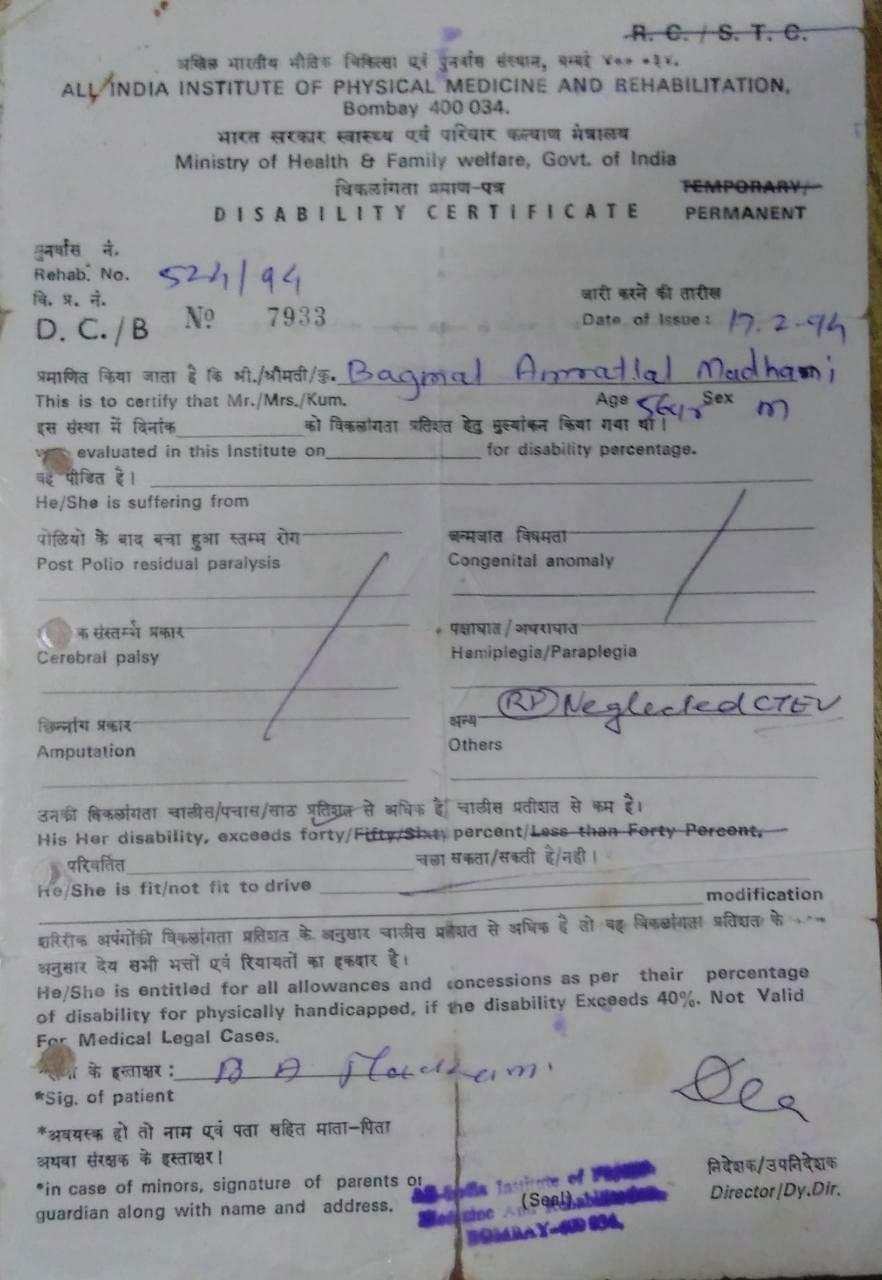 R. C. / S. T. C.
अखिल भारतीय भौतिक चिकित्सा एवं पुनर्वास संस्थान, बम्बई ४०० ०३४.
ALL INDIA INSTITUTE OF PHYSICAL MEDICINE AND REHABILITATION,
Bombay 400 034.
भारत सरकार स्वास्थ्य एवं परिवार कल्याण मंत्रालय
Ministry of Health & Family welfare, Govt. of India
विकलांगता प्रमाण-पत्र TEMPORARY/
DISABILITY CERTIFICATE PERMANENT
पुनर्वास नं.
Rehab. No. 524/94
वि. प्र. नं. जारी करने की तारीख
D. C./B Nº 7933 Date of Issue: 17.2.94
प्रमाणित किया जाता है कि श्री./श्रीमती/कु. Bagmal Amratlal Madhani
This is to certify that Mr./Mrs./Kum. Age 56yr Sex m
इस संस्था में दिनांक को विकलांगता प्रतिशत हेतु मुल्यांकन किया गया था।
evaluated in this Institute on for disability percentage.
वह पीडित है।
He/She is suffering from
पोलियो के बाद बचा हुआ स्तम्भ रोग जन्मजात विषमता
Post Polio residual paralysis Congenital anomaly
प्रकार पक्षाघात/अधराघात
Cerebral palsy Hemiplegia/Paraplegia
छिन्नांग प्रकार अन्य (RT) Neglected CTEV
Amputation Others
उनकी विकलांगता चालीस/पचास/साठ प्रतिशत से अधिक है/ चालीस प्रतीशत से कम है।
His Her disability, exceeds forty/Fifty/Sixty percent/Less than Forty Percent.
परिवर्तित चला सकता/सकती है/नही।
He/She is fit/not fit to drive modification
शरिरीक अपंगोंकी विकलांगता प्रतिशत के अनुसार चालीस प्रतिशत से अधिक है तो वह विकलांगता प्रतिशत के
अनुसार देय सभी भत्तों एवं रियायतों का हकदार है।
He/She is entitled for all allowances and concessions as per their percentage
of disability for physically handicapped, if the disability Exceeds 40%. Not Valid
For Medical Legal Cases.
के हस्ताक्षर: B A Madhani
*Sig. of patient
*अवयस्क हो तो नाम एवं पता सहित माता-पिता
अथवा संरक्षक के हस्ताक्षर। निदेशक/उपनिदेशक
*in case of minors, signature of parents or (Seal) Director/Dy.Dir.
guardian along with name and address.
All-India Institute of Physical
Medicine And Rehabilitation,
BOMBAY-400 034.